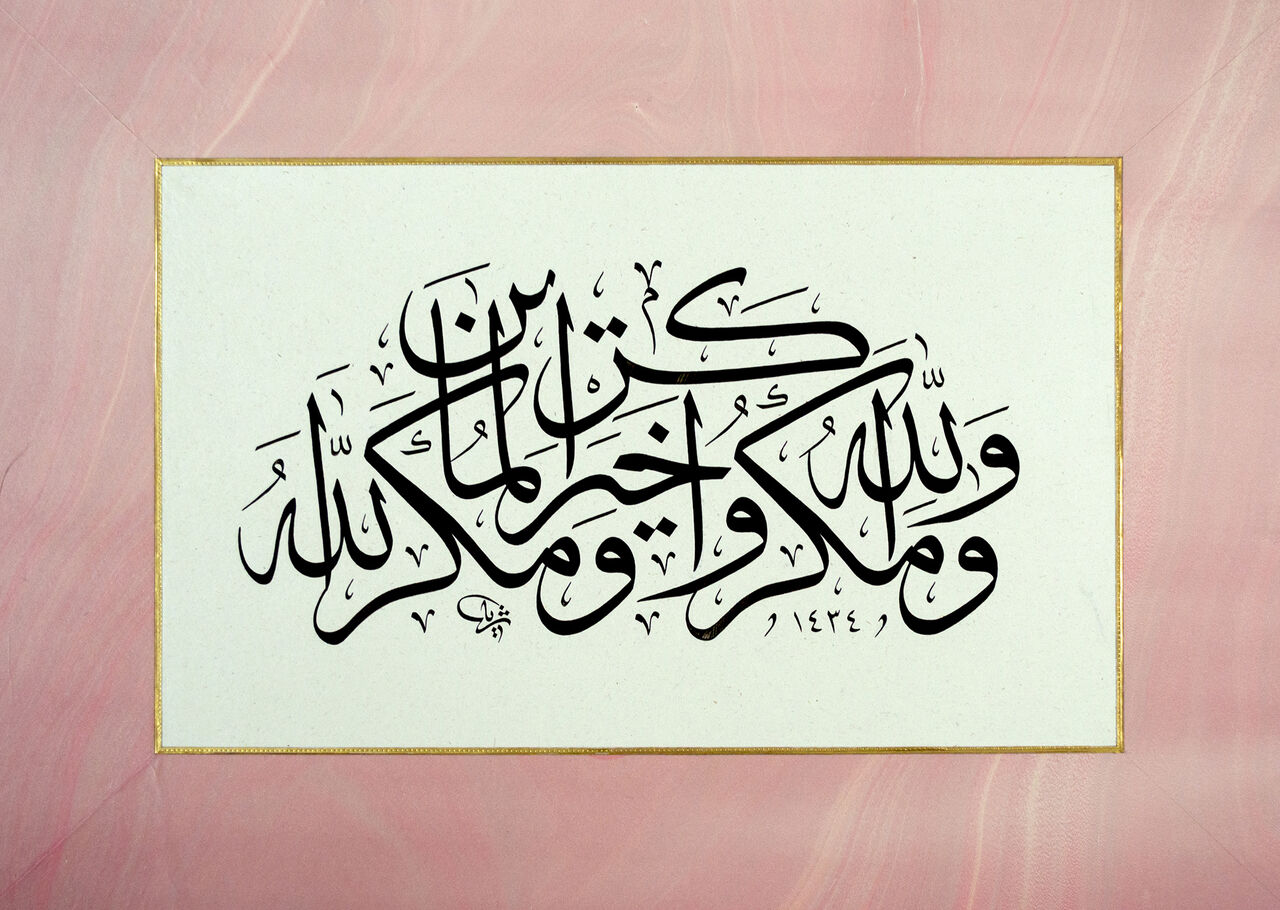 ومكروا ومكر الله والله خير الماكرين
ثريا
١٤٣٤